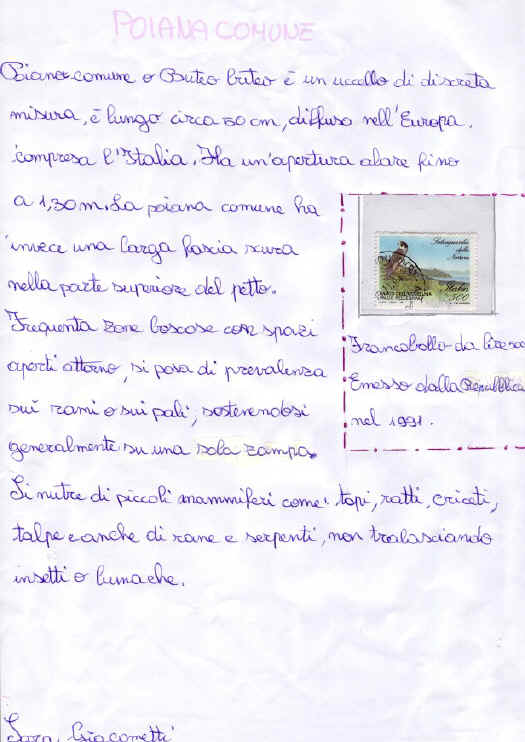 POIANA COMUNE
Poiana comune o Buteo buteo è un uccello di discreta
misura, è lungo circa 50 cm, diffuso nell'Europa.
compresa l'Italia. Ha un'apertura alare fino
a 1,30 m. La poiana comune ha
invece una larga fascia scura
nella parte superiore del petto.
Frequenta zone boscose con spazi
aperti attorno, si posa di prevalenza
sui rami o sui pali, sostenendosi
generalmente su una sola zampa.
Salvaguardia
della
Natura
Italia
500
Francobollo da Lire 500
Emesso dalla Repubblica
nel 1991.
Si nutre di piccoli mammiferi come: topi, ratti, criceti,
talpe e anche di rane e serpenti, non tralasciando
insetti o lumache.
Sara Giacometti